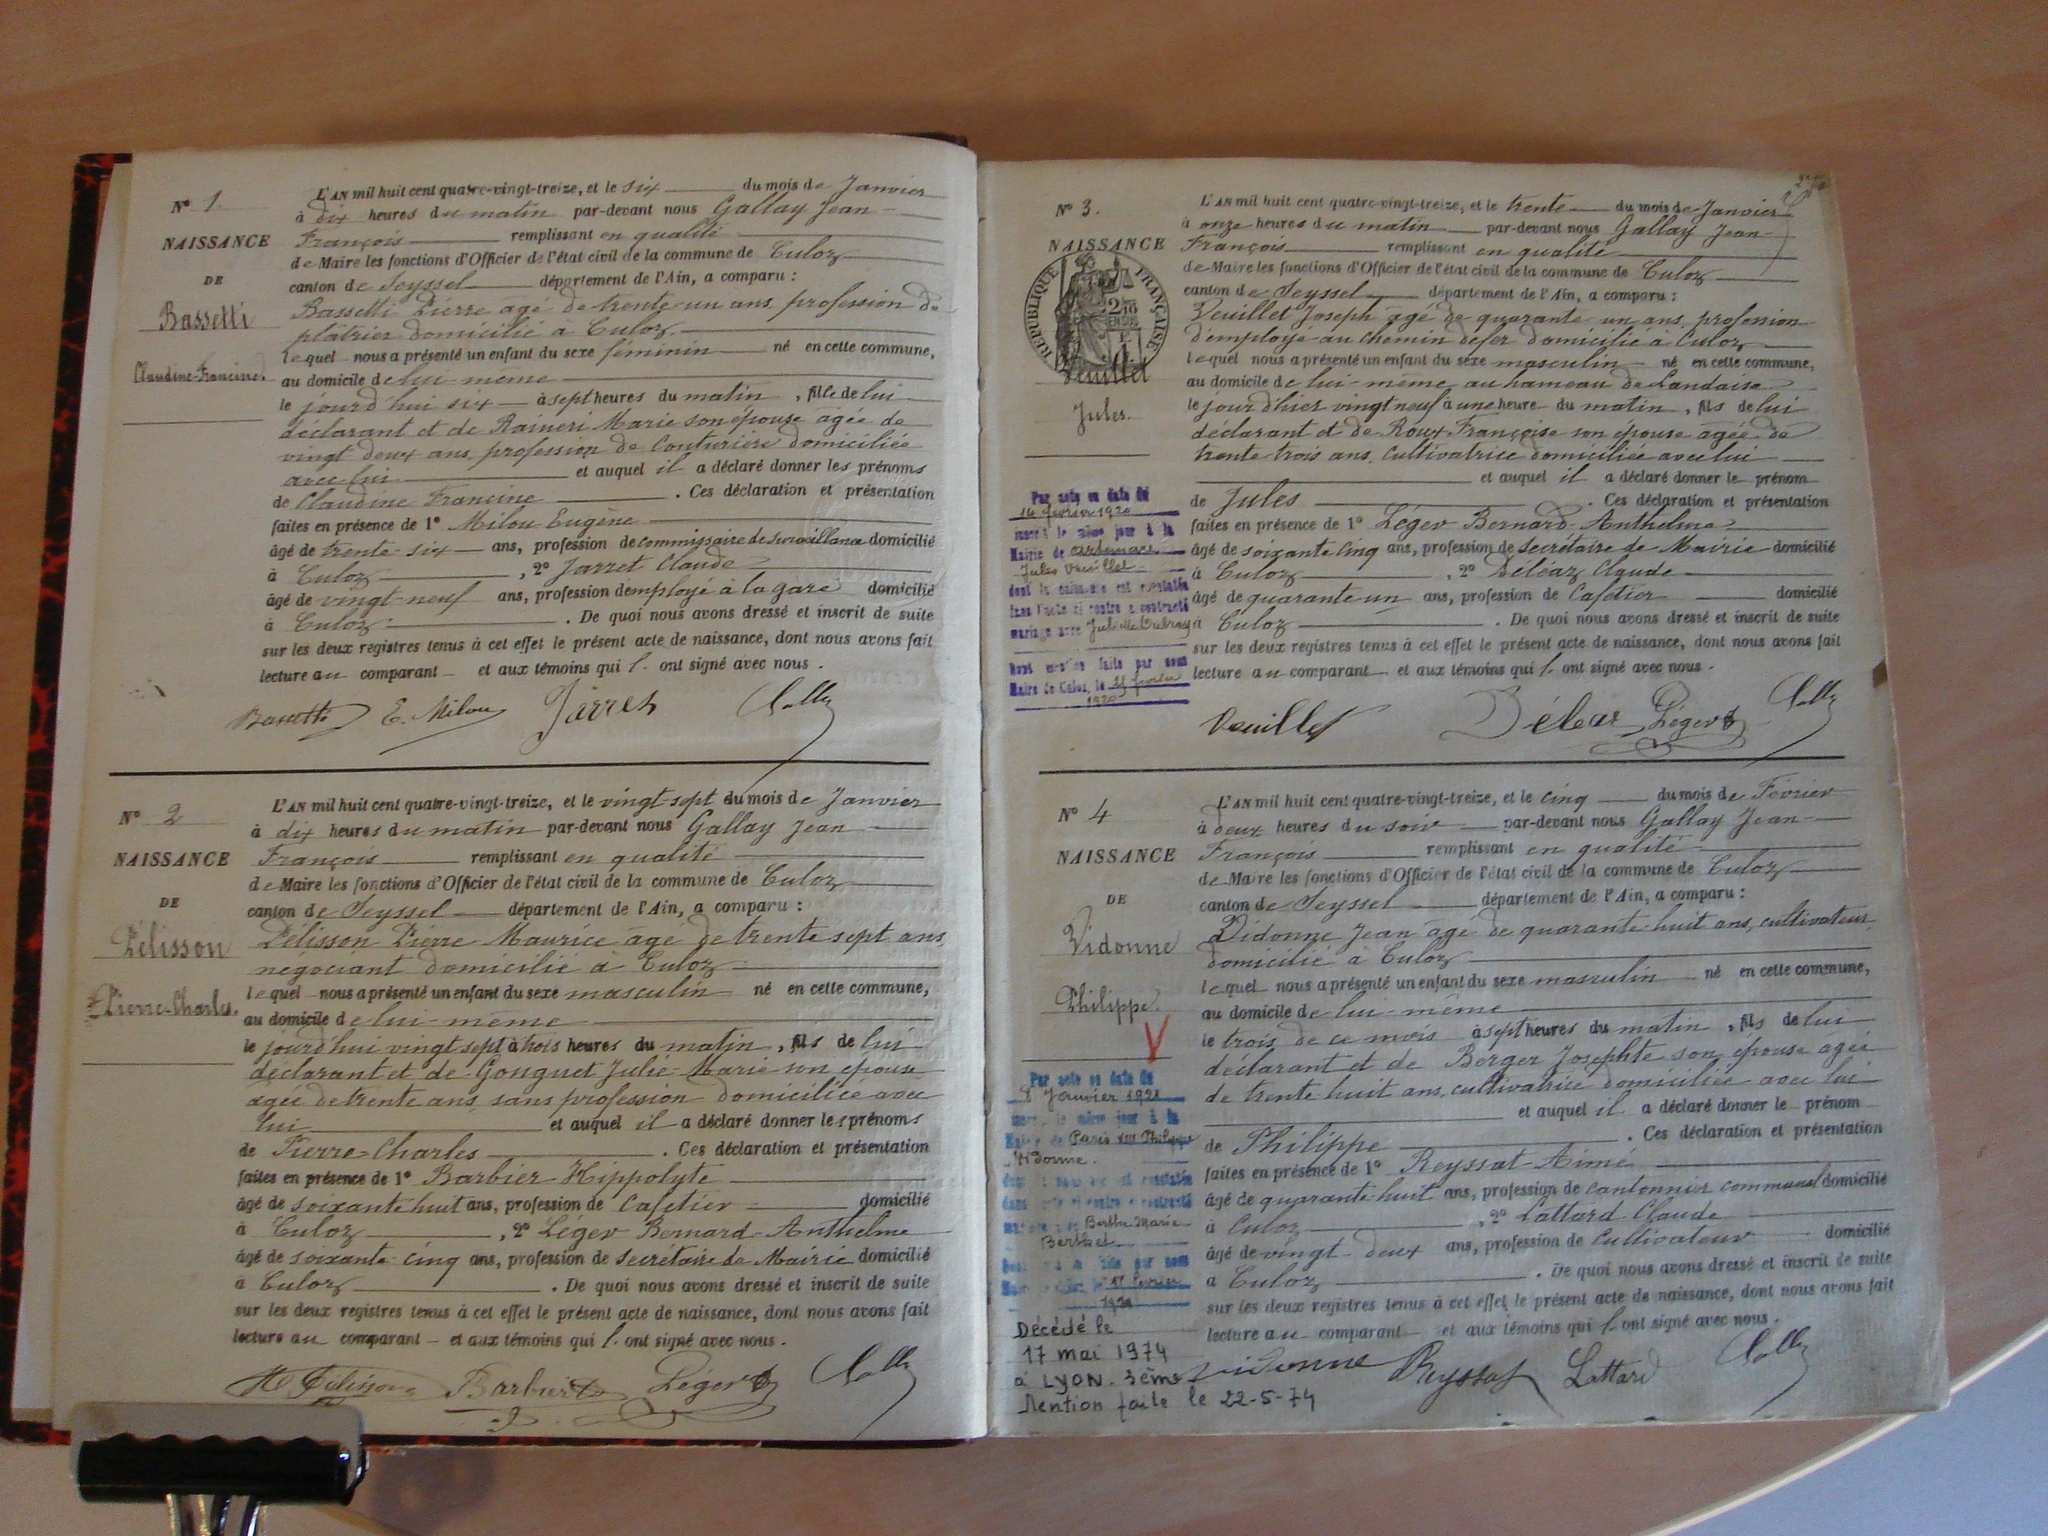 N° 1.
NAISSANCE
DE
Bassetti
Claudine-Francine.
L'AN mil huit cent quatre-vingt-treize, et le six du mois de Janvier
à dix heures du matin par-devant nous Gallay Jean-
François remplissant en qualité
de Maire les fonctions d'Officier de l'état civil de la commune de Culoz
canton de Seyssel département de l'Ain, a comparu :
Bassetti Pierre agé de trente-un ans, profession de
plâtrier domicilié à Culoz
lequel nous a présenté un enfant du sexe féminin né en cette commune,
au domicile de lui-même
le jourd'hui six à sept heures du matin, fille de lui
déclarant et de Raineri Marie son épouse âgée de
vingt deux ans, profession de Couturière domiciliée
avec lui et auquel il a déclaré donner les prénoms
de Claudine Francine. Ces déclaration et présentation
faites en présence de 1° Milou Eugène
âgé de trente-six ans, profession de commissaire de surveillance domicilié
à Culoz, 2° Jarret Claude
âgé de vingt-neuf ans, profession d'employé à la gare domicilié
à Culoz. De quoi nous avons dressé et inscrit de suite
sur les deux registres tenus à cet effet le présent acte de naissance, dont nous avons fait
lecture au comparant et aux témoins qui l'ont signé avec nous.
Bassetti E. Milou Jarret Gallay
N° 2
NAISSANCE
DE
Pélisson
Pierre-Charles.
L'AN mil huit cent quatre-vingt-treize, et le vingt-sept du mois de Janvier
à dix heures du matin par-devant nous Gallay Jean
François remplissant en qualité
de Maire les fonctions d'Officier de l'état civil de la commune de Culoz
canton de Seyssel département de l'Ain, a comparu :
Pélisson Pierre Maurice âgé de trente sept ans,
négociant domicilié à Culoz
lequel nous a présenté un enfant du sexe masculin né en cette commune,
au domicile de lui-même
le jourd'hui vingt sept à trois heures du matin, fils de lui
déclarant et de Gouguet Julie-Marie son épouse
agée de trente ans, sans profession domiciliée avec
lui et auquel il a déclaré donner les prénoms
de Pierre-Charles. Ces déclaration et présentation
faites en présence de 1° Barbier Hippolyte
âgé de soixante huit ans, profession de Cafetier domicilié
à Culoz, 2° Léger Bernard-Anthelme
âgé de soixante-cinq ans, profession de secrétaire de Mairie domicilié
à Culoz. De quoi nous avons dressé et inscrit de suite
sur les deux registres tenus à cet effet le présent acte de naissance, dont nous avons fait
lecture au comparant et aux témoins qui l'ont signé avec nous.
Pélisson Barbier Léger Gallay
N° 3.
NAISSANCE
RÉPUBLIQUE FRANÇAISE
Veuillet
Jules.
L'AN mil huit cent quatre-vingt-treize, et le trente du mois de Janvier
à onze heures du matin par-devant nous Gallay Jean-
François remplissant en qualité
de Maire les fonctions d'Officier de l'état civil de la commune de Culoz
canton de Seyssel département de l'Ain, a comparu :
Veuillet Joseph âgé de quarante-un ans, profession
d'employé au chemin de fer domicilié à Culoz
lequel nous a présenté un enfant du sexe masculin né en cette commune,
au domicile de lui-même au hameau de Landaise
le jour d'hier vingt neuf à une heure du matin, fils de lui
déclarant et de Roux Françoise son épouse agée de
trente-trois ans, cultivatrice domiciliée avec lui
et auquel il a déclaré donner le prénom
de Jules. Ces déclaration et présentation
faites en présence de 1° Léger Bernard-Anthelme
âgé de soixante cinq ans, profession de secrétaire de Mairie domicilié
à Culoz, 2° Déléaz Claude
âgé de quarante un ans, profession de Cafetier domicilié
à Culoz. De quoi nous avons dressé et inscrit de suite
sur les deux registres tenus à cet effet le présent acte de naissance, dont nous avons fait
lecture au comparant et aux témoins qui l'ont signé avec nous.
Veuillet Déléaz Léger Gallay
Par acte en date du
14 février 1920
inscrit le même jour à la
Mairie de Artemare
Jules Veuillet
dont la naissance est constatée
dans l'acte ci contre a contracté
mariage avec
Dont mention faite par nous
Maire de Culoz, le février
1920
N° 4
NAISSANCE
DE
Vidonne
Philippe.
V
L'AN mil huit cent quatre-vingt-treize, et le cinq du mois de Février
à deux heures du soir par-devant nous Gallay Jean-
François remplissant en qualité
de Maire les fonctions d'Officier de l'état civil de la commune de Culoz
canton de Seyssel département de l'Ain, a comparu :
Vidonne Jean âgé de quarante-huit ans, cultivateur,
domicilié à Culoz
lequel nous a présenté un enfant du sexe masculin né en cette commune,
au domicile de lui-même
le trois de ce mois à sept heures du matin, fils de lui
déclarant et de Berger Josephte son épouse agée
de trente huit ans, cultivatrice domiciliée avec lui
et auquel il a déclaré donner le prénom
de Philippe. Ces déclaration et présentation
faites en présence de 1° Reyssat Aimé
âgé de quarante huit ans, profession de cantonnier communal domicilié
à Culoz, 2° Lattard Claude
âgé de vingt-deux ans, profession de Cultivateur domicilié
à Culoz. De quoi nous avons dressé et inscrit de suite
sur les deux registres tenus à cet effet le présent acte de naissance, dont nous avons fait
lecture au comparant et aux témoins qui l'ont signé avec nous.
Vidonne Reyssat Lattard Gallay
Par acte en date du
8 Janvier 1921
le même jour à la
Mairie de Paris Philippe
Vidonne.
Berthe Marie
Berthet
faite par nous
février
1921
Décédé le
17 mai 1974
à LYON. 3ème
Mention faite le 22-5-74